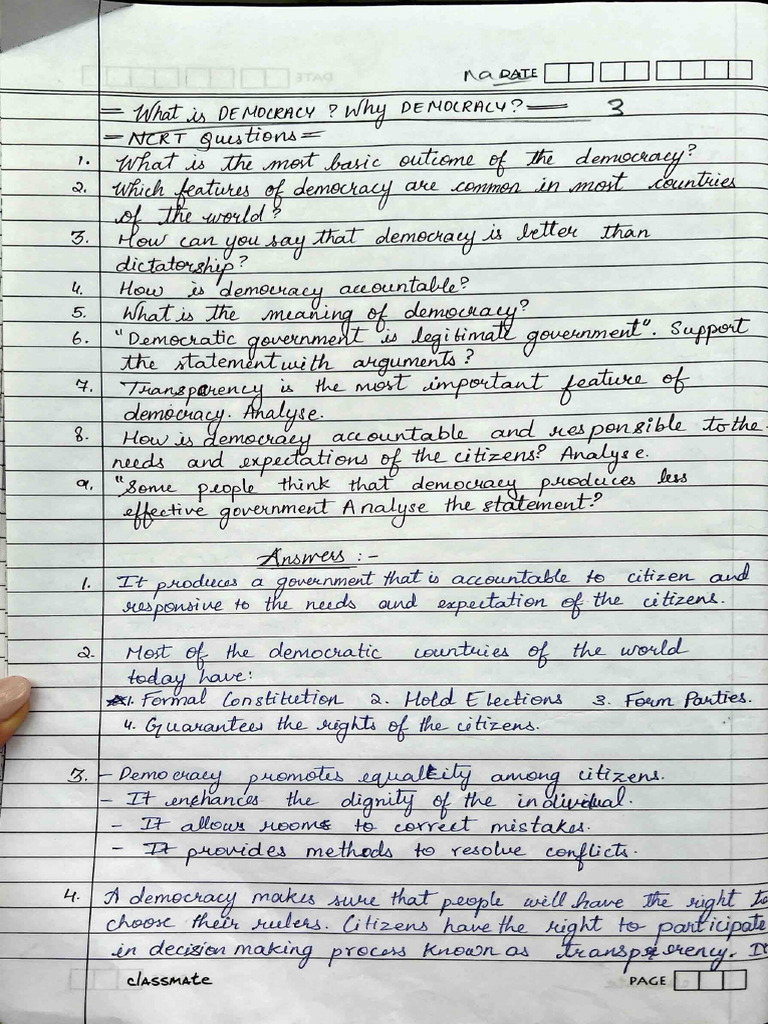 Na DATE
= What is DEMOCRACY ? Why DEMOCRACY? = 3
= NCRT Questions =
1. What is the most basic outcome of the democracy?
2. Which features of democracy are common in most countries
of the world?
3. How can you say that democracy is better than
dictatorship?
4. How is democracy accountable?
5. What is the meaning of democracy?
6. "Democratic government is legitimate government". Support
the statement with arguments?
7. Transparency is the most important feature of
democracy. Analyse.
8. How is democracy accountable and responsible to the
needs and expectations of the citizens? Analyse.
9. "Some people think that democracy produces less
effective government Analyse the statement?
Answers :-
1. It produces a government that is accountable to citizen and
responsive to the needs and expectation of the citizens.
2. Most of the democratic countries of the world
today have:
1. Formal Constitution 2. Hold Elections 3. Form Parties.
4. Guarantees the rights of the citizens.
3. - Democracy promotes equality among citizens.
- It enhances the dignity of the individual.
- It allows room to correct mistakes.
- It provides methods to resolve conflicts.
4. A democracy makes sure that people will have the right to
choose their rulers. Citizens have the right to participate
in decision making process known as transparency. It
classmate PAGE